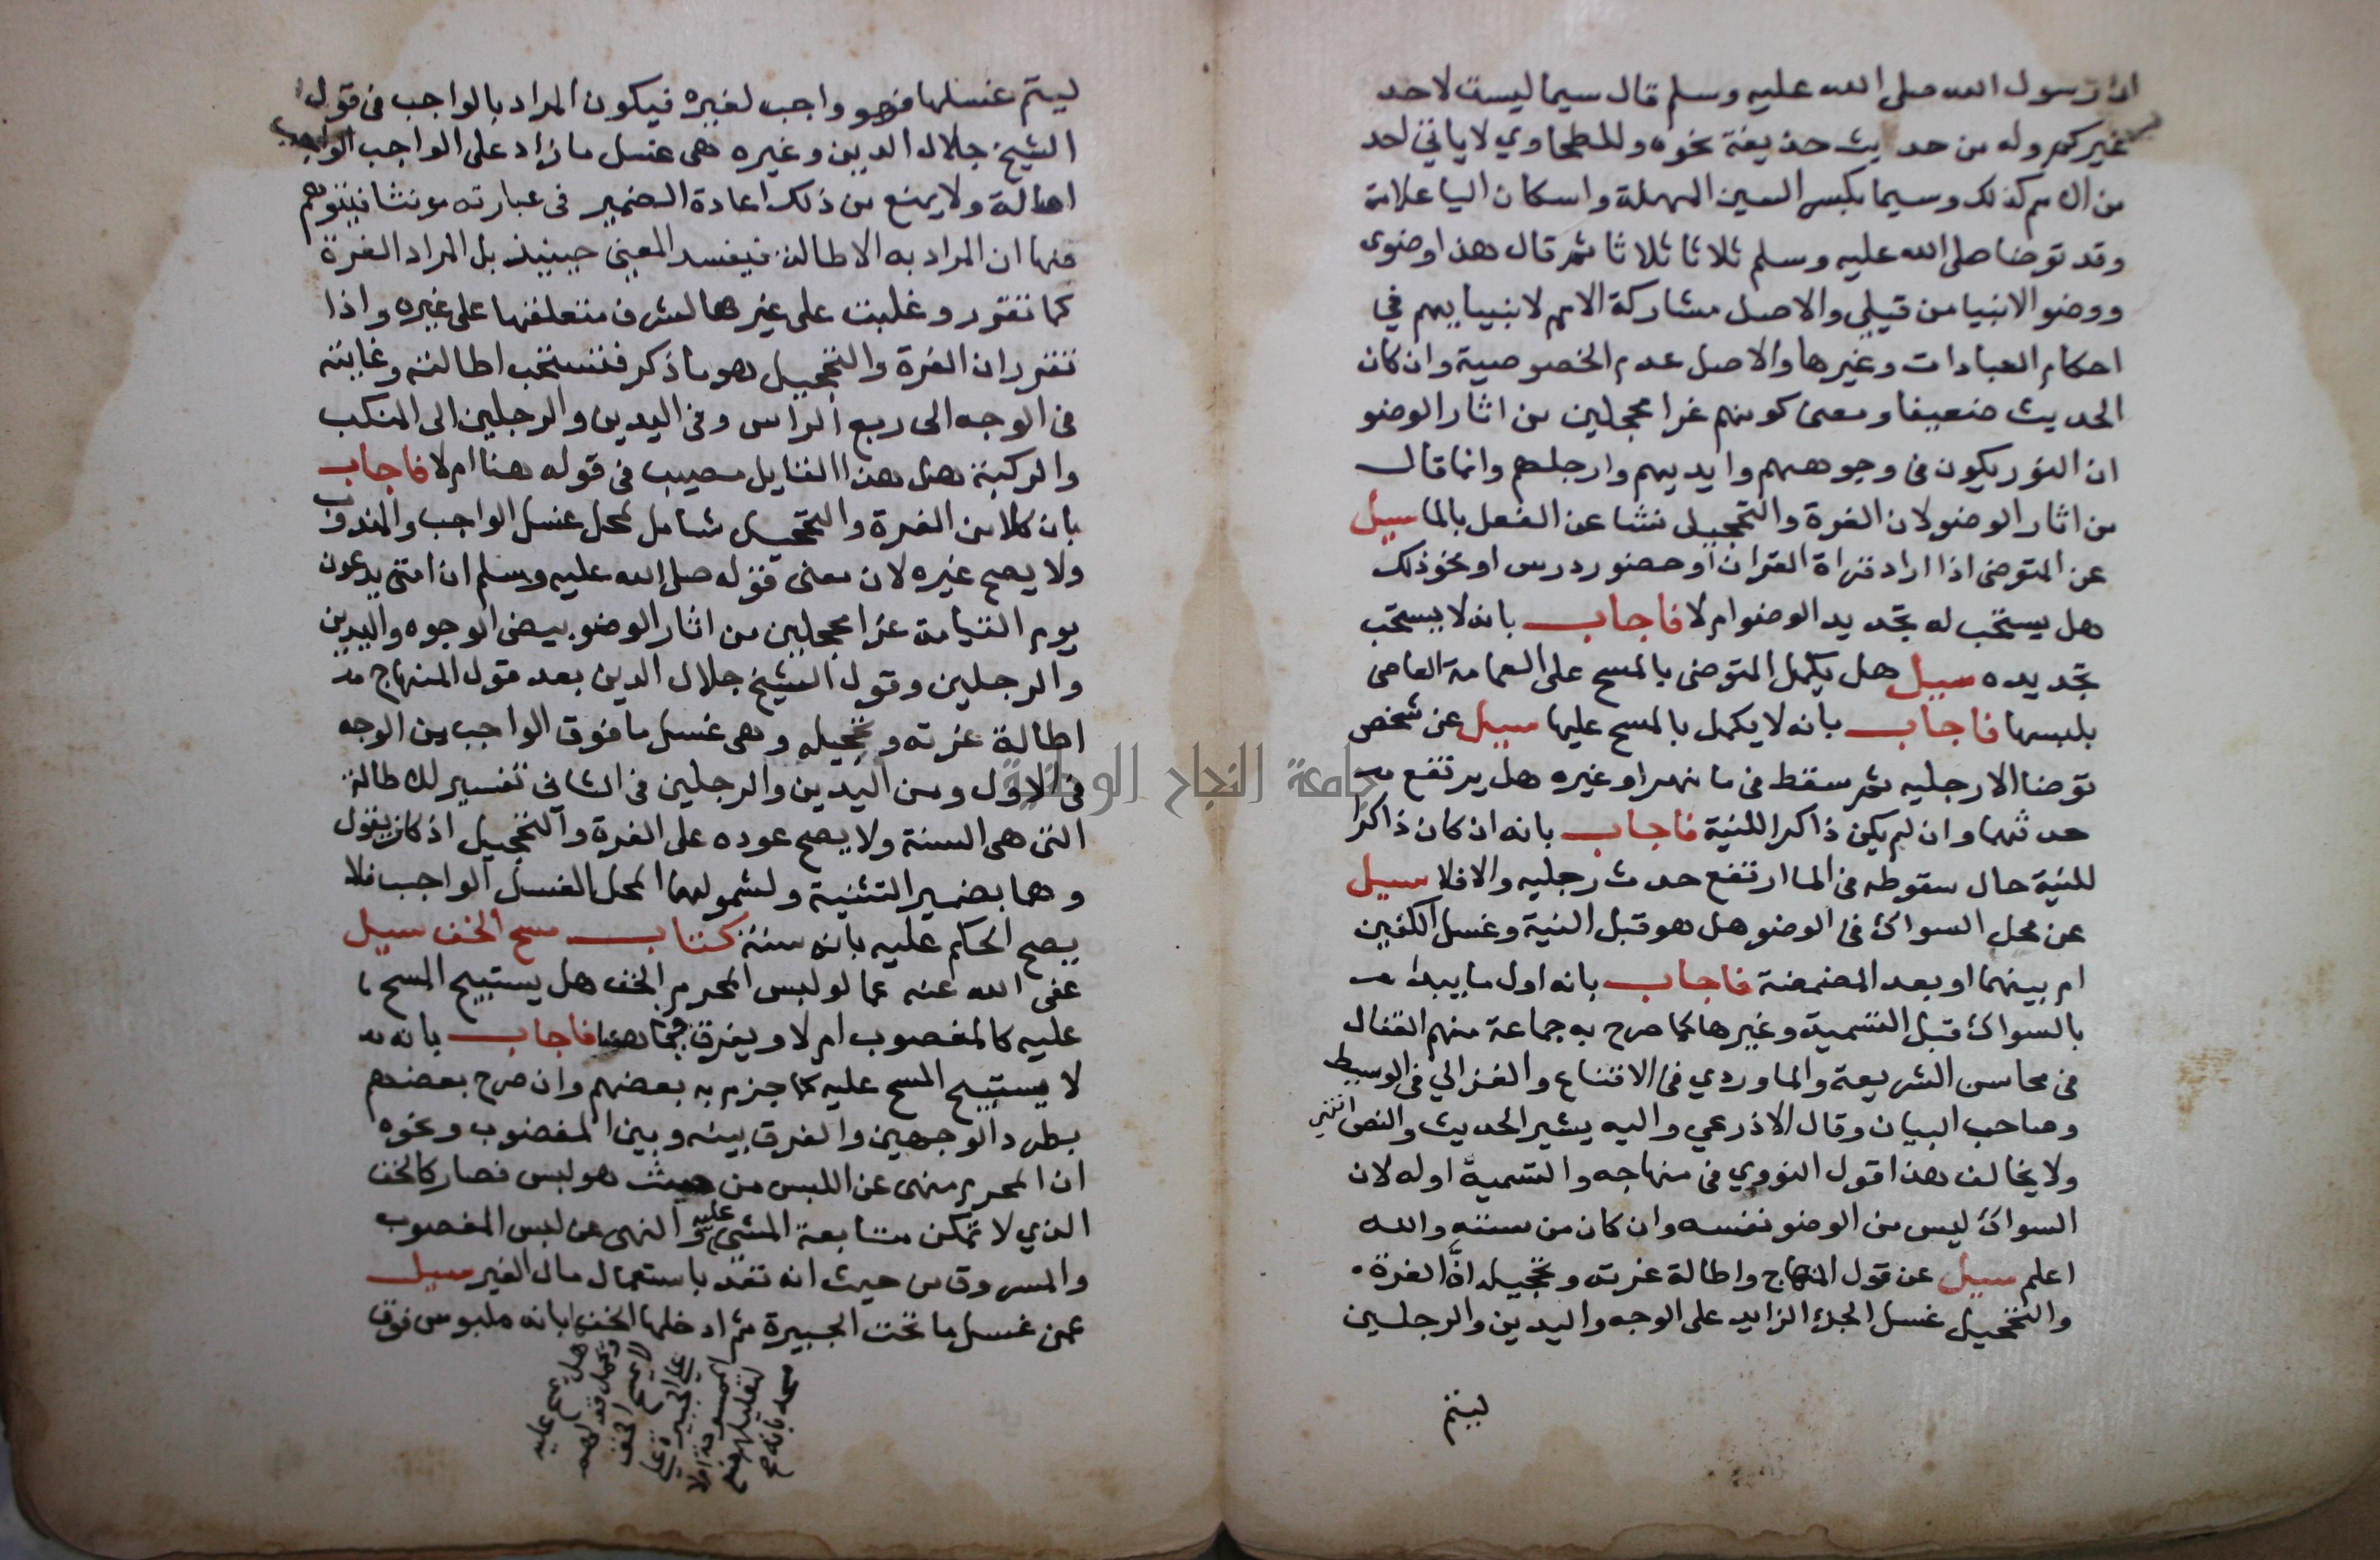 ان رسول الله صلى الله عليه وسلم قال سيما ليست لاحد
غيركم وله من حديث حذيفة نحوه وللطحاوي لا ياتي احد
من الامم كذلك وسيما بكسر السين المهملة واسكان اليا علامة
وقد توضا صلى الله عليه وسلم ثلاثا ثلاثا ثم قال هذا وضوى
ووضو الانبيا من قبلي والاصل مشاركة الامم لانبيايهم في
احكام العبادات وغيرها والاصل عدم الخصوصية وان كان
الحديث ضعيفا ومعنى كونهم غرا محجلين من اثار الوضو
ان النور يكون في وجوههم وايديهم وارجلهم وانما قال
من اثار الوضو لان الغرة والتحجيل نشا عن الفعل بالما سيل
عن المتوضى اذا اراد قراة القران او حضور درس او نحو ذلك
هل يستحب له تجديد الوضو ام لا فاجاب بانه لا يستحب
تجديده سيل هل يكمل المتوضى بالمسح على العمامة العاصى
بلبسها فاجاب بانه لا يكمل بالمسح عليها سيل عن شخص
توضا الا رجليه ثم سقط في ما نهر او غيره هل يرتفع
حدثهما وان لم يكن ذاكرا للنية فاجاب بانه ان كان ذاكرا
للنية حال سقوطه في الما ارتفع حدث رجليه والا فلا سيل
عن محل السواك في الوضو هل هو قبل النية وغسل الكفين
ام بينهما او بعد المضمضة فاجاب بانه اول ما يبدا
بالسواك قبل التسمية وغيرها كما صرح به جماعة منهم القفال
في محاسن الشريعة والماوردي في الاقناع والغزالي في الوسيط
وصاحب البيان وقال الاذرعي واليه يشير الحديث والنص انتهى
ولا يخالف هذا قول النووي في منهاجه والتسمية اوله لان
السواك ليس من الوضو نفسه وان كان من سننه والله
اعلم سيل عن قول المنهاج واطالة غرته وتحجيله اذ الغرة
والتحجيل غسل الجزء الزايد على الوجه واليدين والرجلين
ليتم
ليتم غسلها فهو واجب لغيره فيكون المراد بالواجب في قول
الشيخ جلال الدين وغيره هي غسل ما زاد على الواجب الواجب
اصالة ولا يمنع من ذلك اعادة الضمير في عبارته مونثا فيتوهم
منها ان المراد به الاطالة فيفسد المعنى حينيذ بل المراد الغرة
كما تقرر وغلبت على غيرها لشرف متعلقها على غيره واذا
تقرر ان الغرة والتحجيل هو ما ذكر فتستحب اطالته وغايته
في الوجه الى ربع الراس وفي اليدين والرجلين الى المنكب
والركبة هل هذا القايل مصيب في قوله هنا ام لا فاجاب
بان كلا من الغرة والتحجيل شامل لمحل غسل الواجب والمندوب
ولا يصح غيره لان معنى قوله صلى الله عليه وسلم ان امتي يدعون
يوم القيامة غرا محجلين من اثار الوضو بيض الوجوه واليدين
والرجلين وقول الشيخ جلال الدين بعد قول المنهاج
اطالة غرته وتحجيله وهي غسل ما فوق الواجب من الوجه
في الاول ومن اليدين والرجلين في الثاني تفسير للاطالة
التي هي السنة ولا يصح عوده على الغرة والتحجيل اذ كان يقول
وهما بضمير التثنية ولشمولهما لمحل الغسل الواجب فلا
يصح الحكم عليه بانه سنة كتاب مسح الخف سيل
عفى الله عنه عما لو لبس المحرم الخف هل يستبيح المسح
عليه كالمغصوب ام لا ويفرق فاجاب بانه
لا يستبيح المسح عليه كما جزم به بعضهم وان صرح بعضهم
بطرد الوجهين والفرق بينه وبين المغصوب ونحوه
ان المحرم منهى عن اللبس من حيث هو لبس فصار كالخف
الذي لا تمكن متابعة المشي عليه والنهى عن لبس المغصوب
والمسروق من حيث انه تعد باستعمال مال الغير سيل
عمن غسل ما تحت الجبيرة ثم ادخلها الخف بانه ملبوس فوق
جامعة النجاح الوطنية